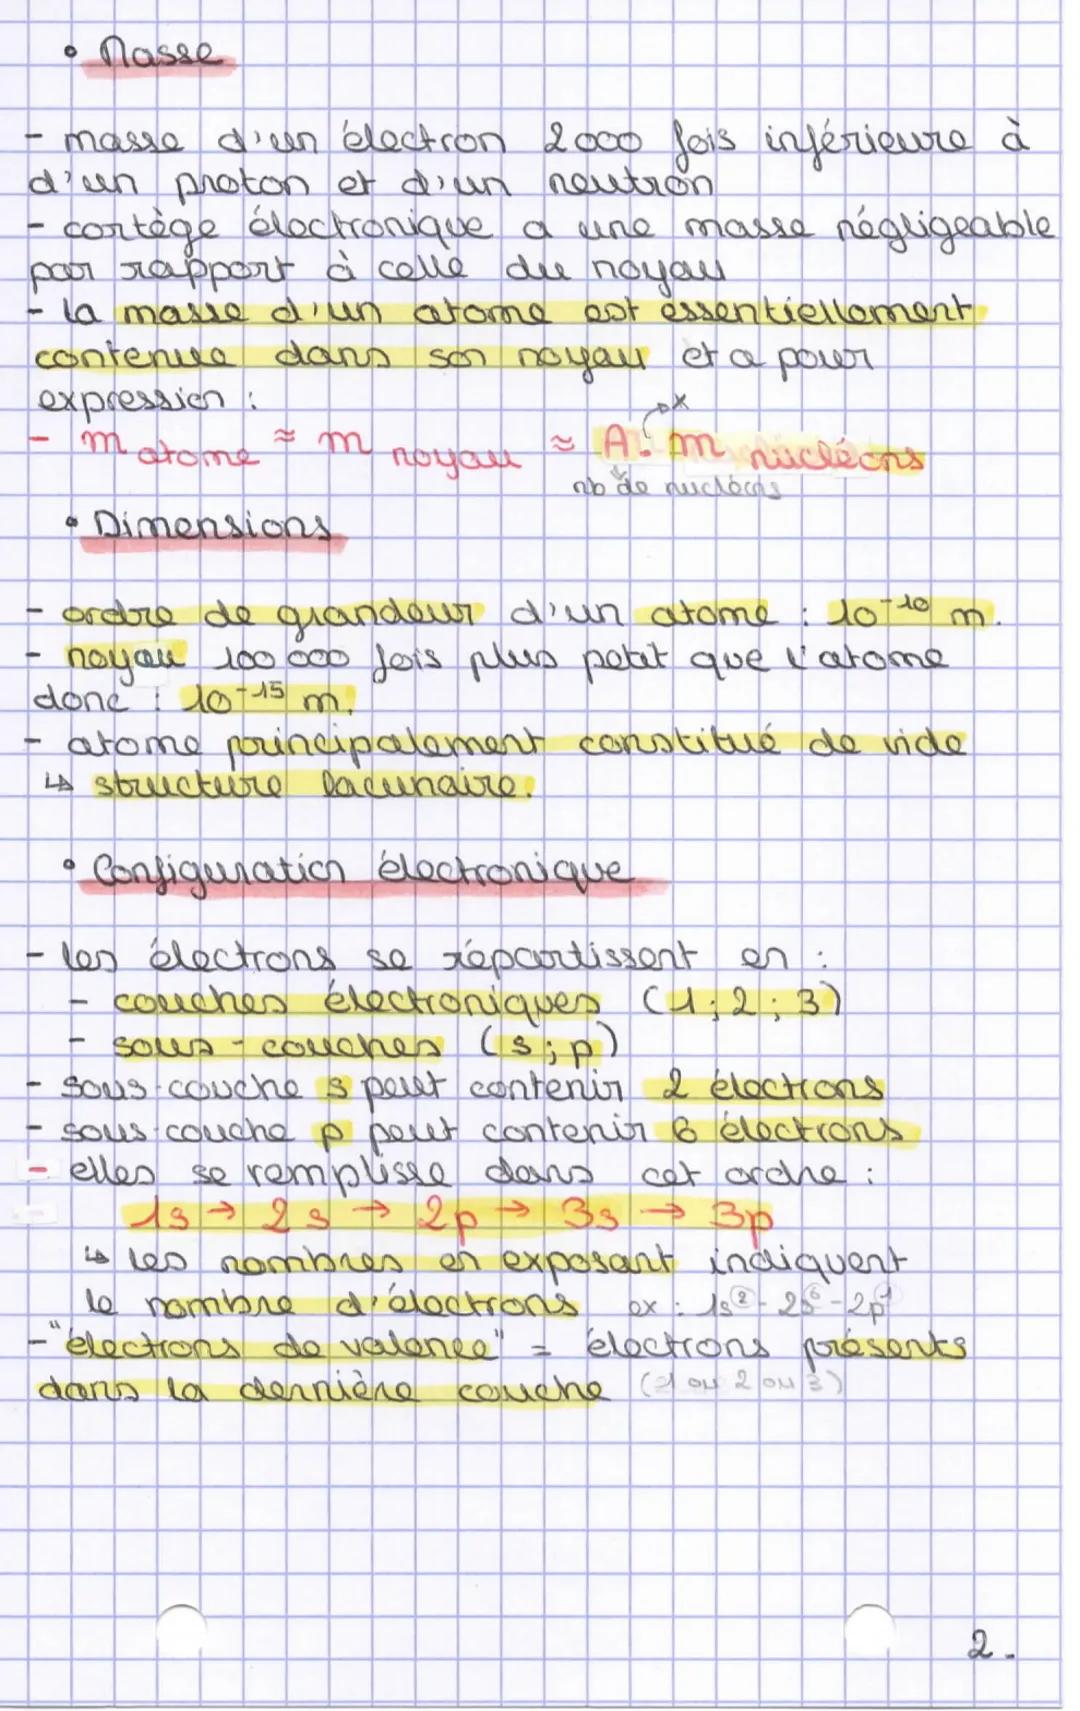 • Masse
- masse d'un électron 2000 fois inférieure à
d'un proton et d'un neutron
- cortège électronique a une masse négligeable
par rapport à celle du noyau
- la masse d'un atome est essentiellement
contenue dans son noyau et a pour
expression :
- m atome ≈ m noyau ≈ A. m nucléons
→ x
nb de nucléons
• Dimensions
- ordre de grandeur d'un atome : 10⁻¹⁰ m.
- noyau 100 000 fois plus petit que l'atome
donc : 10⁻¹⁵ m.
- atome principalement constitué de vide
↳ structure lacunaire.
• Configuration électronique
- les électrons se répartissent en :
- couches électroniques (1 ; 2 ; 3)
- sous-couches (s ; p)
- sous-couche s peut contenir 2 électrons
- sous-couche p peut contenir 6 électrons
- elles se remplisse dans cet ordre :
1s → 2s → 2p → 3s → 3p
↳ les nombres en exposant indiquent
le nombre d'électrons ex : 1s² - 2s⁶ - 2p¹
- "électrons de valence" = électrons présents
dans la dernière couche (1 ou 2 ou 3)
2.